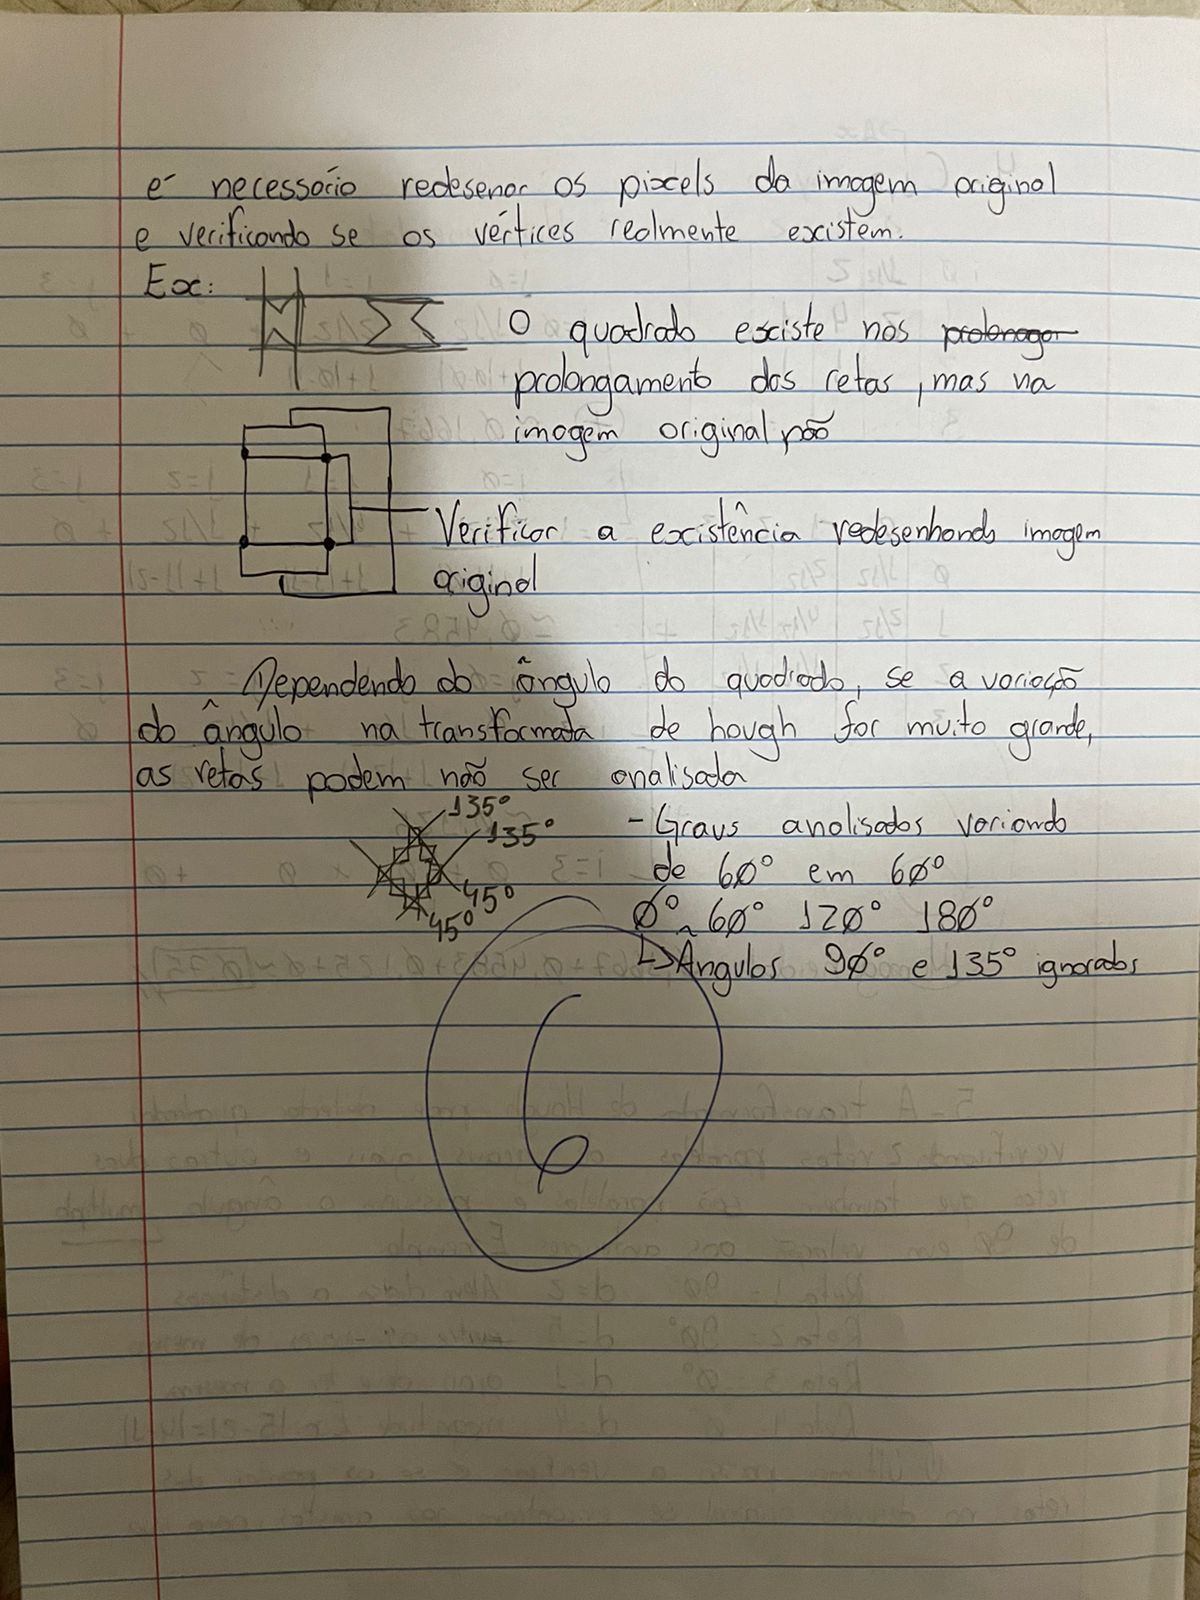 é necessário redesenar os pixels da imagem original
e verificando se os vértices realmente existem.
Ex:
O quadrado existe nos prolonagar
prolongamento das retas, mas na
imagem original não
Verificar a existência redesenhando imagem
original
Dependendo do ângulo do quadrado, se a variação
do ângulo na transformada de hough for muito grande,
as retas podem não ser analisada
135°
135°
45°
45°
- Graus analisados variando
de 60° em 60°
0° 60° 120° 180°
↳ Ângulos 90° e 135° ignorados
6